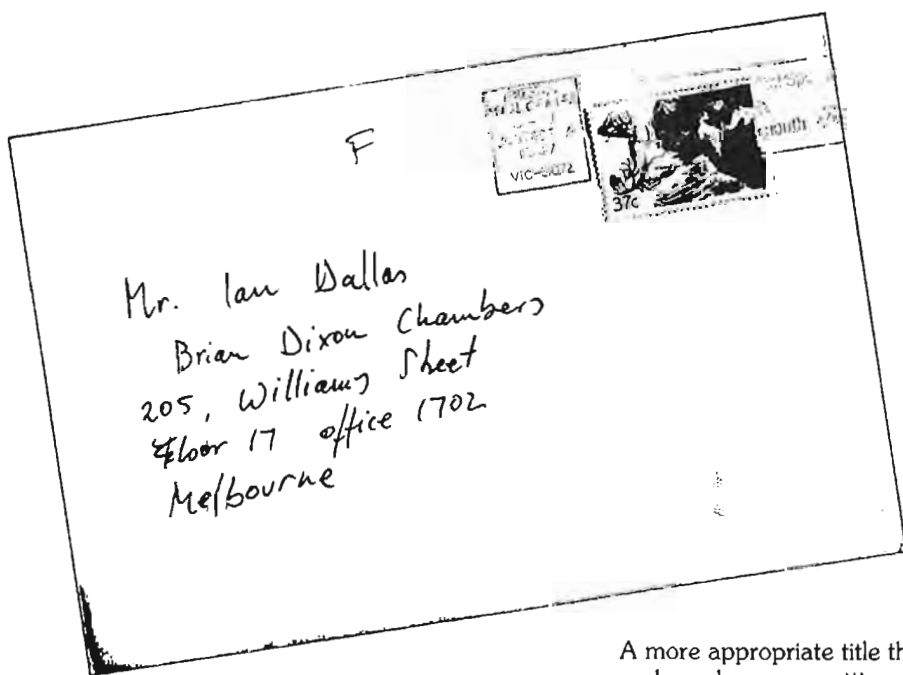 F
37c
Mr. Ian Dallas
Brian Dixon Chambers
205, Williams Street
Floor 17 office 1702
Melbourne
A more appropriate title th